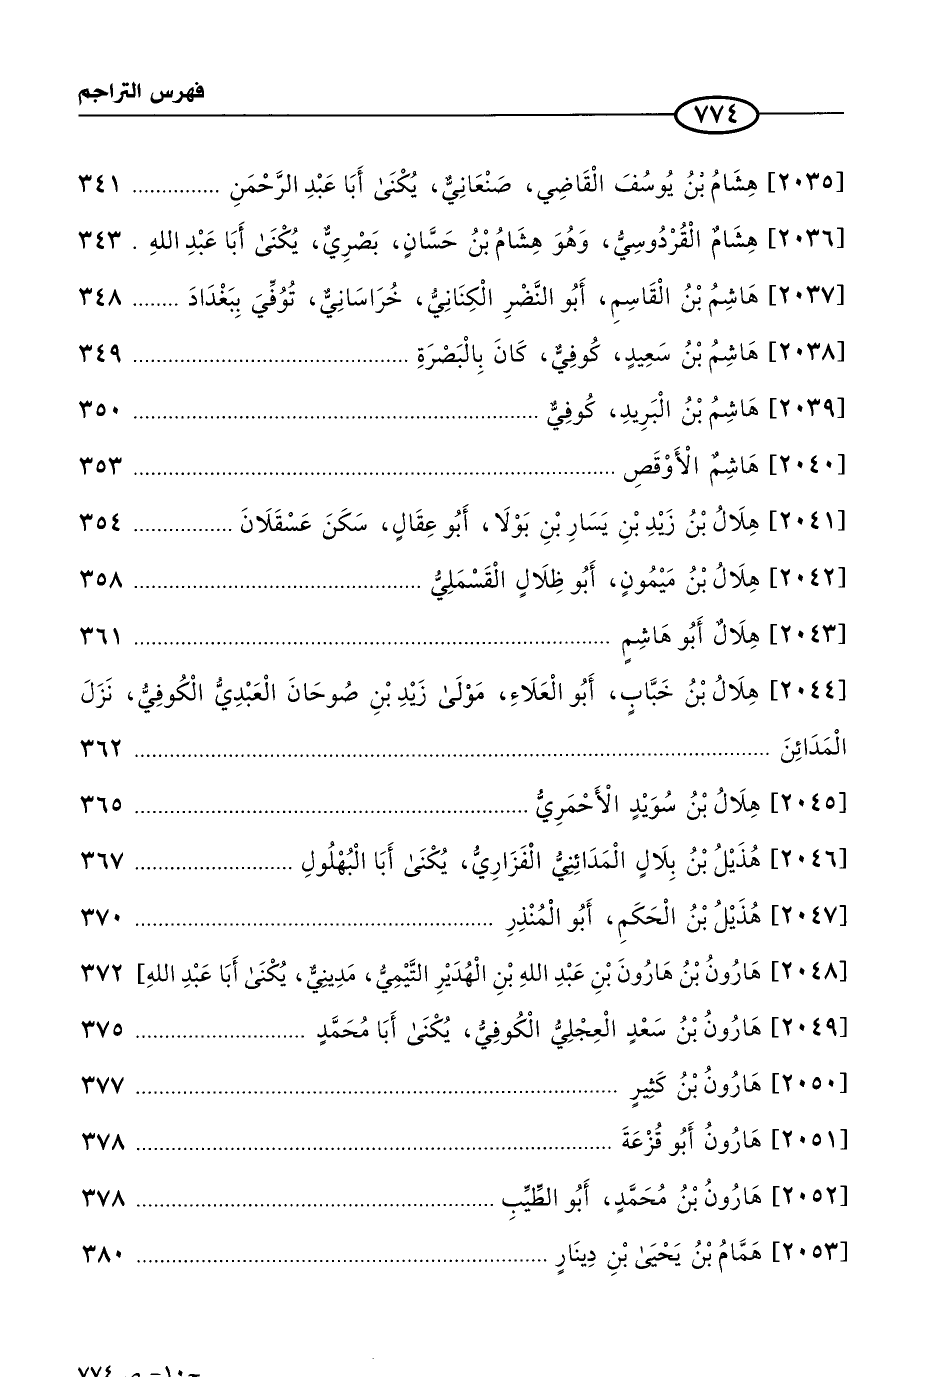 فهرس التراجم
٧٧٤
[٢٠٣٥] هِشَامُ بْنُ يُوسُفَ الْقَاضِي، صَنْعَانِيٌّ، يُكْنَىٰ أَبَا عَبْدِ الرَّحْمَنِ ............... ٣٤١
[٢٠٣٦] هِشَامٌ الْقُرْدُوسِيُّ، وَهُوَ هِشَامُ بْنُ حَسَّانٍ، بَصْرِيٌّ، يُكْنَىٰ أَبَا عَبْدِ اللهِ . ٣٤٣
[٢٠٣٧] هَاشِمُ بْنُ الْقَاسِمِ، أَبُو النَّضْرِ الْكِنَانِيُّ، خُرَاسَانِيٌّ، تُوُفِّيَ بِبَغْدَادَ ........ ٣٤٨
[٢٠٣٨] هَاشِمُ بْنُ سَعِيدٍ، كُوفِيٌّ، كَانَ بِالْبَصْرَةِ ............................................... ٣٤٩
[٢٠٣٩] هَاشِمُ بْنُ الْبَرِيدِ، كُوفِيٌّ ..................................................................... ٣٥٠
[٢٠٤٠] هَاشِمٌ الْأَوْقَصِ ................................................................................. ٣٥٣
[٢٠٤١] هِلَالُ بْنُ زَيْدِ بْنِ يَسَارِ بْنِ بَوْلَا، أَبُو عِقَالٍ، سَكَنَ عَسْقَلَانَ ................. ٣٥٤
[٢٠٤٢] هِلَالُ بْنُ مَيْمُونٍ، أَبُو ظِلَالٍ الْقَسْمَلِيُّ ................................................. ٣٥٨
[٢٠٤٣] هِلَالٌ أَبُو هَاشِمٍ ................................................................................ ٣٦١
[٢٠٤٤] هِلَالُ بْنُ خَبَّابٍ، أَبُو الْعَلَاءِ، مَوْلَىٰ زَيْدِ بْنِ صُوحَانَ الْعَبْدِيُّ الْكُوفِيُّ، نَزَلَ
الْمَدَائِنَ ........................................................................................................... ٣٦٢
[٢٠٤٥] هِلَالُ بْنُ سُوَيْدٍ الْأَحْمَرِيُّ ................................................................... ٣٦٥
[٢٠٤٦] هُذَيْلُ بْنُ بِلَالٍ الْمَدَائِنِيُّ الْفَزَارِيُّ، يُكْنَىٰ أَبَا الْبُهْلُولِ ........................... ٣٦٧
[٢٠٤٧] هُذَيْلُ بْنُ الْحَكَمِ، أَبُو الْمُنْذِرِ ............................................................. ٣٧٠
[٢٠٤٨] هَارُونُ بْنُ هَارُونَ بْنِ عَبْدِ اللهِ بْنِ الْهُدَيْرِ التَّيْمِيُّ، مَدِينِيٌّ، يُكْنَىٰ أَبَا عَبْدِ اللهِ] ٣٧٢
[٢٠٤٩] هَارُونُ بْنُ سَعْدٍ الْعِجْلِيُّ الْكُوفِيُّ، يُكْنَىٰ أَبَا مُحَمَّدٍ ............................. ٣٧٥
[٢٠٥٠] هَارُونُ بْنُ كَثِيرٍ ................................................................................. ٣٧٧
[٢٠٥١] هَارُونُ أَبُو قُزْعَةَ ................................................................................ ٣٧٨
[٢٠٥٢] هَارُونُ بْنُ مُحَمَّدٍ، أَبُو الطِّيِّبِ ............................................................. ٣٧٨
[٢٠٥٣] هَمَّامُ بْنُ يَحْيَىٰ بْنِ دِينَارٍ ..................................................................... ٣٨٠